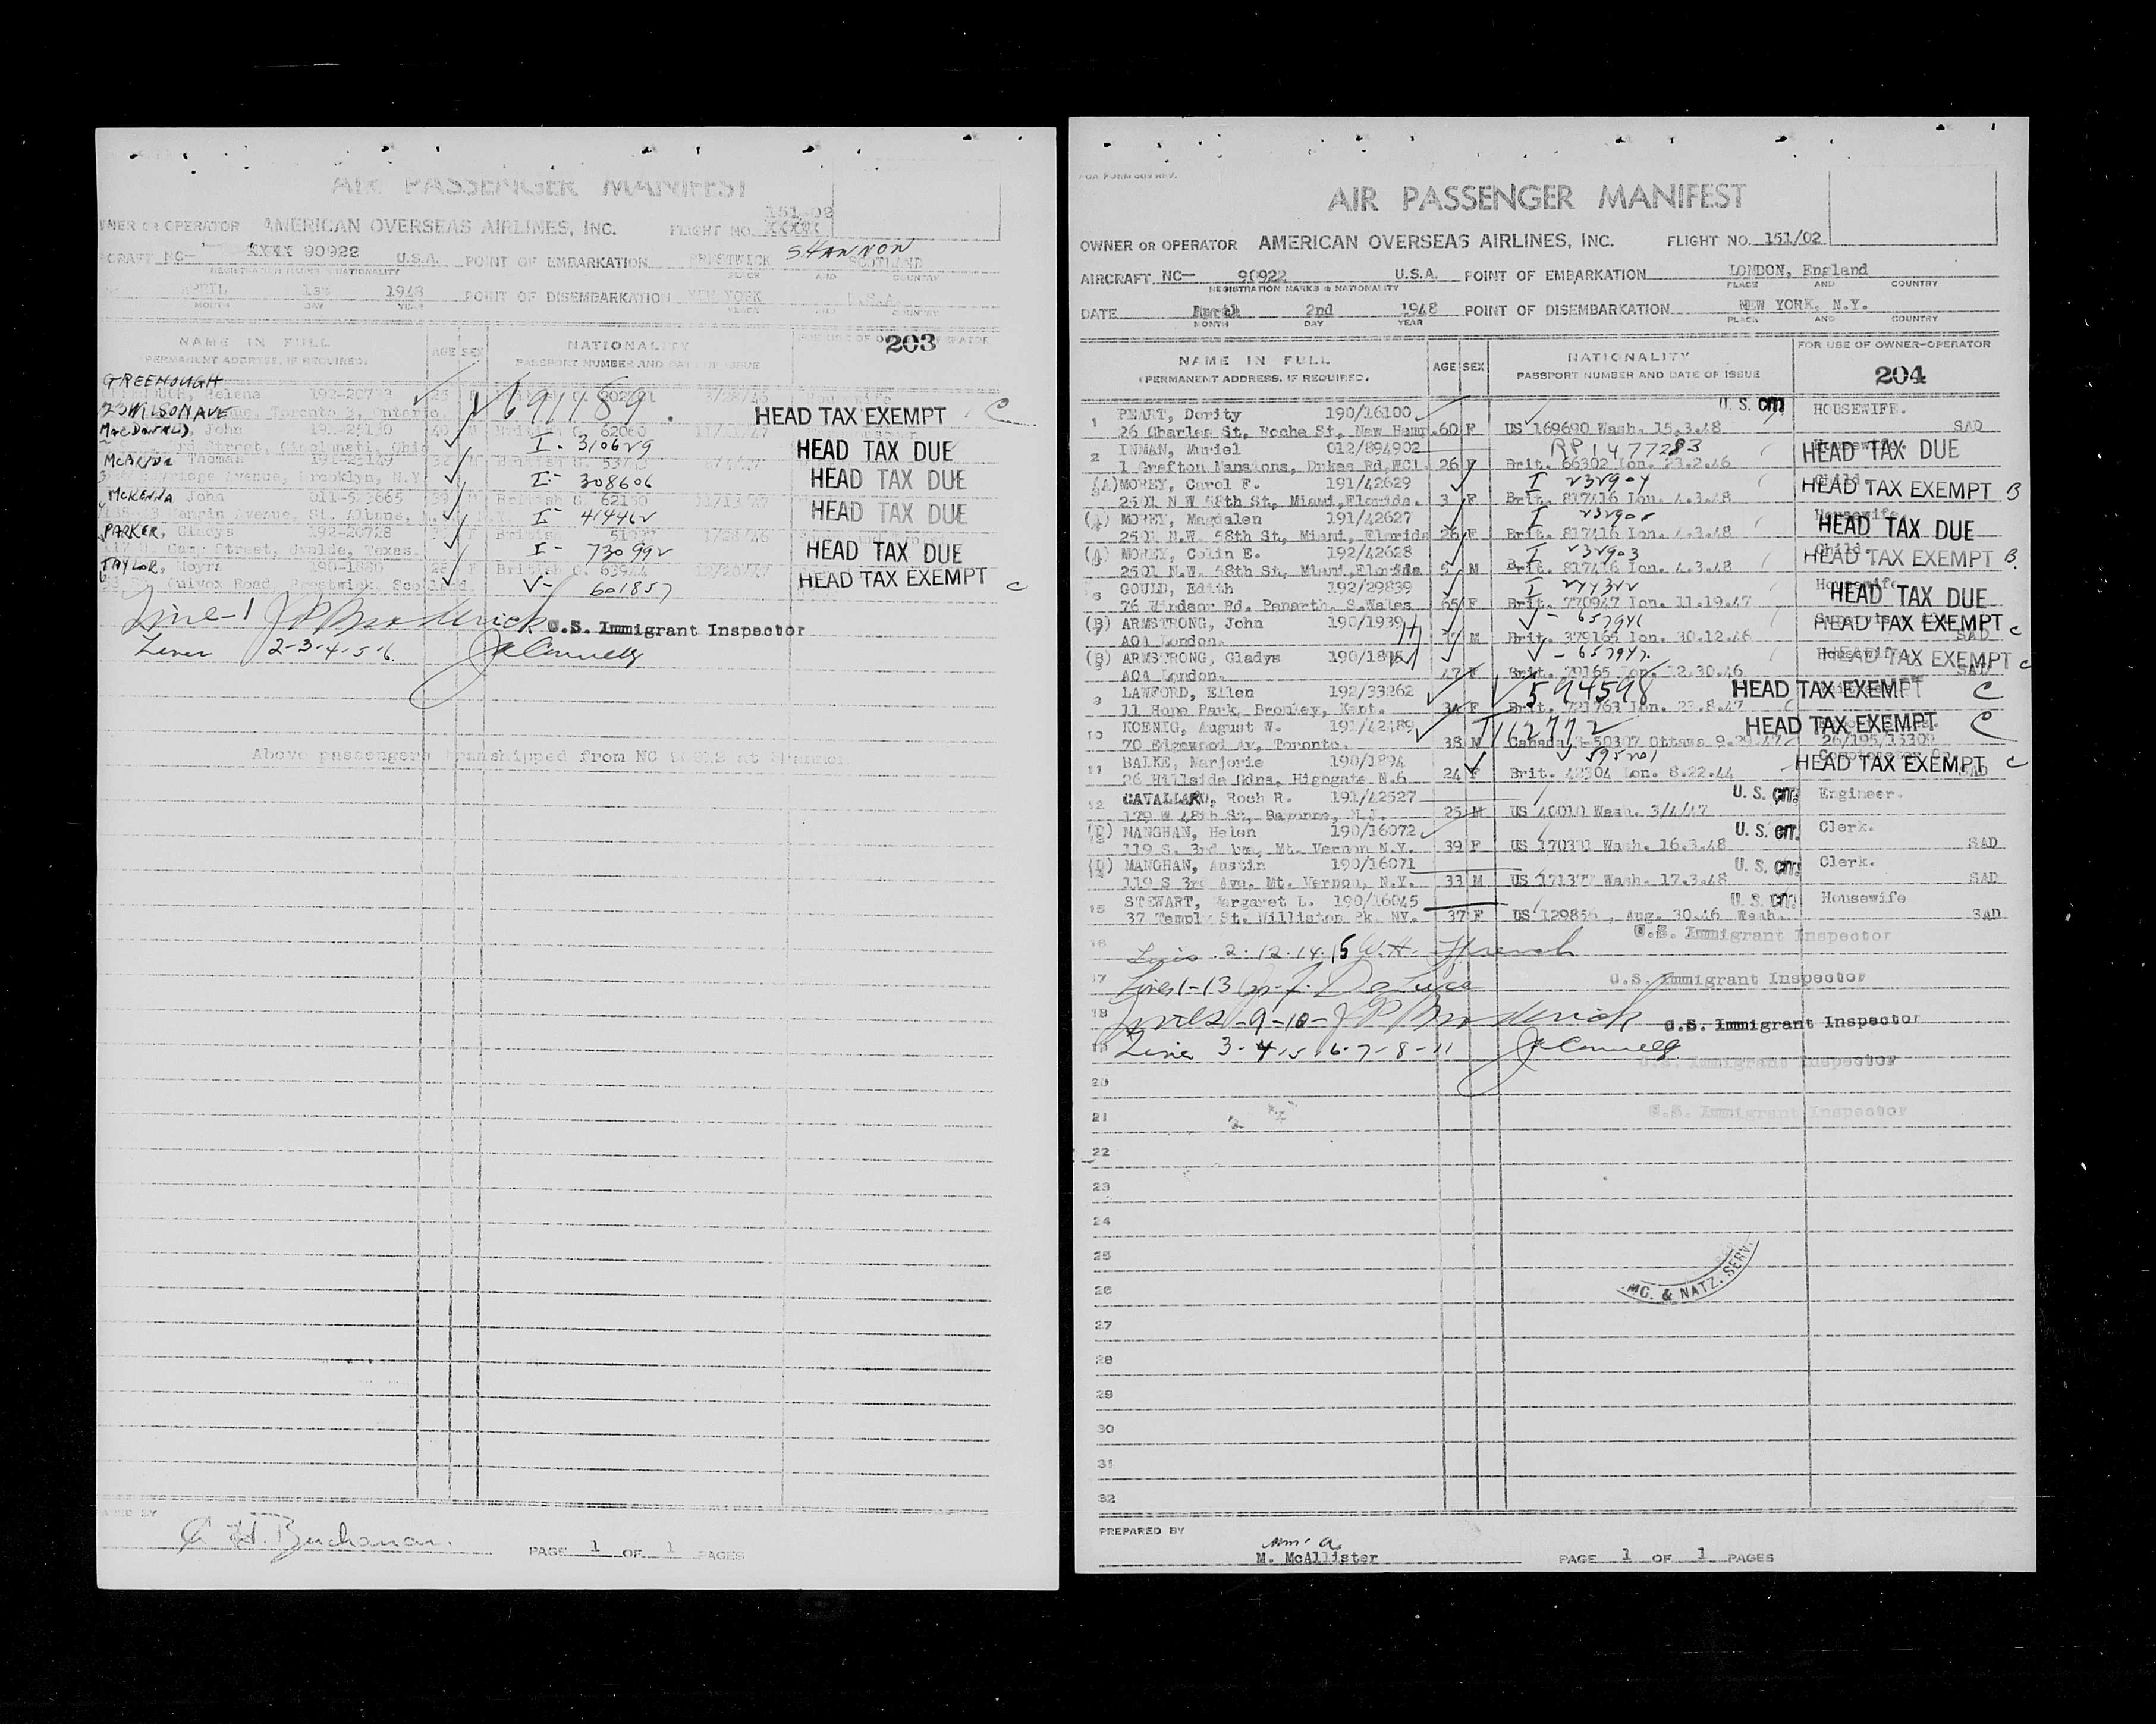 AIR PASSENGER MANIFEST
151-02
OWNER OR OPERATOR AMERICAN OVERSEAS AIRLINES, INC. FLIGHT NO. XXXXX
SHANNON
AIRCRAFT NC— XXXX 90922 U.S.A. POINT OF EMBARKATION PRESTWICK SCOTLAND
REGISTRATION MARKS & NATIONALITY PLACE AND COUNTRY
APRIL 1st 1948 POINT OF DISEMBARKATION NEW YORK U.S.A.
MONTH DAY YEAR PLACE AND COUNTRY
NAME IN FULL AGE SEX NATIONALITY 203
PERMANENT ADDRESS, IF REQUIRED. PASSPORT NUMBER AND DATE OF ISSUE
GREENOUGH
Helena 192-20793 3/28/46 Housewife
23 WILSON AVE Toronto 3, Ontario. V 691189. HEAD TAX EXEMPT C
MacDONALD, John 62060
Street, Cincinnati, Ohio I- 310629 HEAD TAX DUE
McBRIDE Thomas
Avenue, Brooklyn, N.Y. I- 308606 HEAD TAX DUE
McKENNA John British 62130
Avenue, St. Albans, I- 414462 HEAD TAX DUE
PARKER, Gladys 192-20728 British
Street, Uvalde, Texas. I- 730992 HEAD TAX DUE
TAYLOR, Moyra 190-1880 28 F British
Road, Prestwick, Scotland. V- 601857 HEAD TAX EXEMPT C
Line-1 J P Broderick U.S. Immigrant Inspector
Lines 2-3-4-5-6 Connelly
Above passengers transhipped from NC 90912 at Shannon
A H. Buchanan.
PAGE 1 OF 1 PAGES
AOA FORM 609 REV.
AIR PASSENGER MANIFEST
OWNER OR OPERATOR AMERICAN OVERSEAS AIRLINES, INC. FLIGHT NO. 151/02
AIRCRAFT NC— 90922 U.S.A. POINT OF EMBARKATION LONDON, England
REGISTRATION MARKS & NATIONALITY PLACE AND COUNTRY
DATE March 2nd 1948 POINT OF DISEMBARKATION NEW YORK, N.Y.
MONTH DAY YEAR PLACE AND COUNTRY
NAME IN FULL AGE SEX NATIONALITY FOR USE OF OWNER-OPERATOR
(PERMANENT ADDRESS, IF REQUIRED. PASSPORT NUMBER AND DATE OF ISSUE 204
1 PEART, Dority 190/16100 U.S. CIT. HOUSEWIFE.
26 Charles St, Roche St, New Hamp. 60 F US 169690 Wash. 15.3.48 SAD
2 INMAN, Muriel 012/894902 RP 1477283 Housewife.
1 Grafton Mansions, Dukes Rd, WC1. 26 F Brit. 66302 Lon. 23.2.46 HEAD TAX DUE
(A) MOREY, Carol F. 191/42629 I 232904 Child.
2501 N W 58th St, Miami, Florida. 3 F Brit. 817416 Lon. 4.3.48 HEAD TAX EXEMPT B
(A) MOREY, Magdalen 191/42627 I 232905 Housewife.
2501 N.W. 58th St, Miami, Florida 26 F Brit. 817416 Lon. 4.3.48 HEAD TAX DUE
(A) MOREY, Colin E. 192/42628 I 232903 Child.
2501 N.W. 58th St, Miami, Florida 5 M Brit. 817416 Lon. 4.3.48 HEAD TAX EXEMPT B.
6 GOULD, Edith 192/29839 I 244322 Housewife
76 Windsor Rd. Penarth, S.Wales 65 F Brit. 770947 Lon. 11.19.47 HEAD TAX DUE
(B) ARMSTRONG, John 190/1939 V - 657941 HEAD TAX EXEMPT C
AOA London. M Brit. 379165 Lon. 30.12.46 SAD
(B) ARMSTRONG, Gladys V - 657947. Housewife HEAD TAX EXEMPT C
AOA London. 47 F Brit. 79165 Lon. 12.30.46 SAD
9 LAWFORD, Eilen 192/33262 V 594598 HEAD TAX EXEMPT C
11 Hope Park, Bromley, Kent. 34 F Brit. 721763 Lon. 23.8.47
10 KOENIG, August W. 191/42489 112772 HEAD TAX EXEMPT C
70 Edgewood Av, Toronto. 38 M Canada 3-50307 Ottawa 26/195/15309
11 BALKE, Marjorie 190/1894 V 595201 Comptometer Op.
26 Hillside Gdns, Highgate N.6 24 F Brit. 42304 Lon. 8.22.44 HEAD TAX EXEMPT C SAD
12 CAVALLARO, Roch R. 191/42527 U.S. CIT. Engineer.
179 W 48th St, Bayonne, N.J. 25 M US 40010 Wash. 3/4/47
(D) MANGHAN, Helen 190/16072 U.S. CIT. Clerk.
119 S. 3rd Ave, Mt. Vernon N.Y. 39 F US 170371 Wash. 16.3.48 SAD
(D) MANGHAN, Austin 190/16071 U.S. CIT. Clerk.
119 S 3rd Ave, Mt. Vernon, N.Y. 33 M US 171377 Wash. 17.3.48 SAD
15 STEWART, Margaret L. 190/16045 U.S. CIT. Housewife
37 Temple St. Williston Pk. NY. 37 F US 129856, Aug. 30.46 Wash. SAD
16 U.S. Immigrant Inspector
Lines 2.12.14.15 W.H. French
17 Lines 1-13 DeLuca U.S. Immigrant Inspector
18 Lines -9-10- J P Broderick U.S. Immigrant Inspector
19 Lines 3-4-5-6-7-8-11 Connelly
U.S. Immigrant Inspector
20
21 U.S. Immigrant Inspector
22
23
24
25
26 IMG. & NATZ. SERV.
27
28
29
30
31
32
PREPARED BY
M. McAllister PAGE 1 OF 1 PAGES